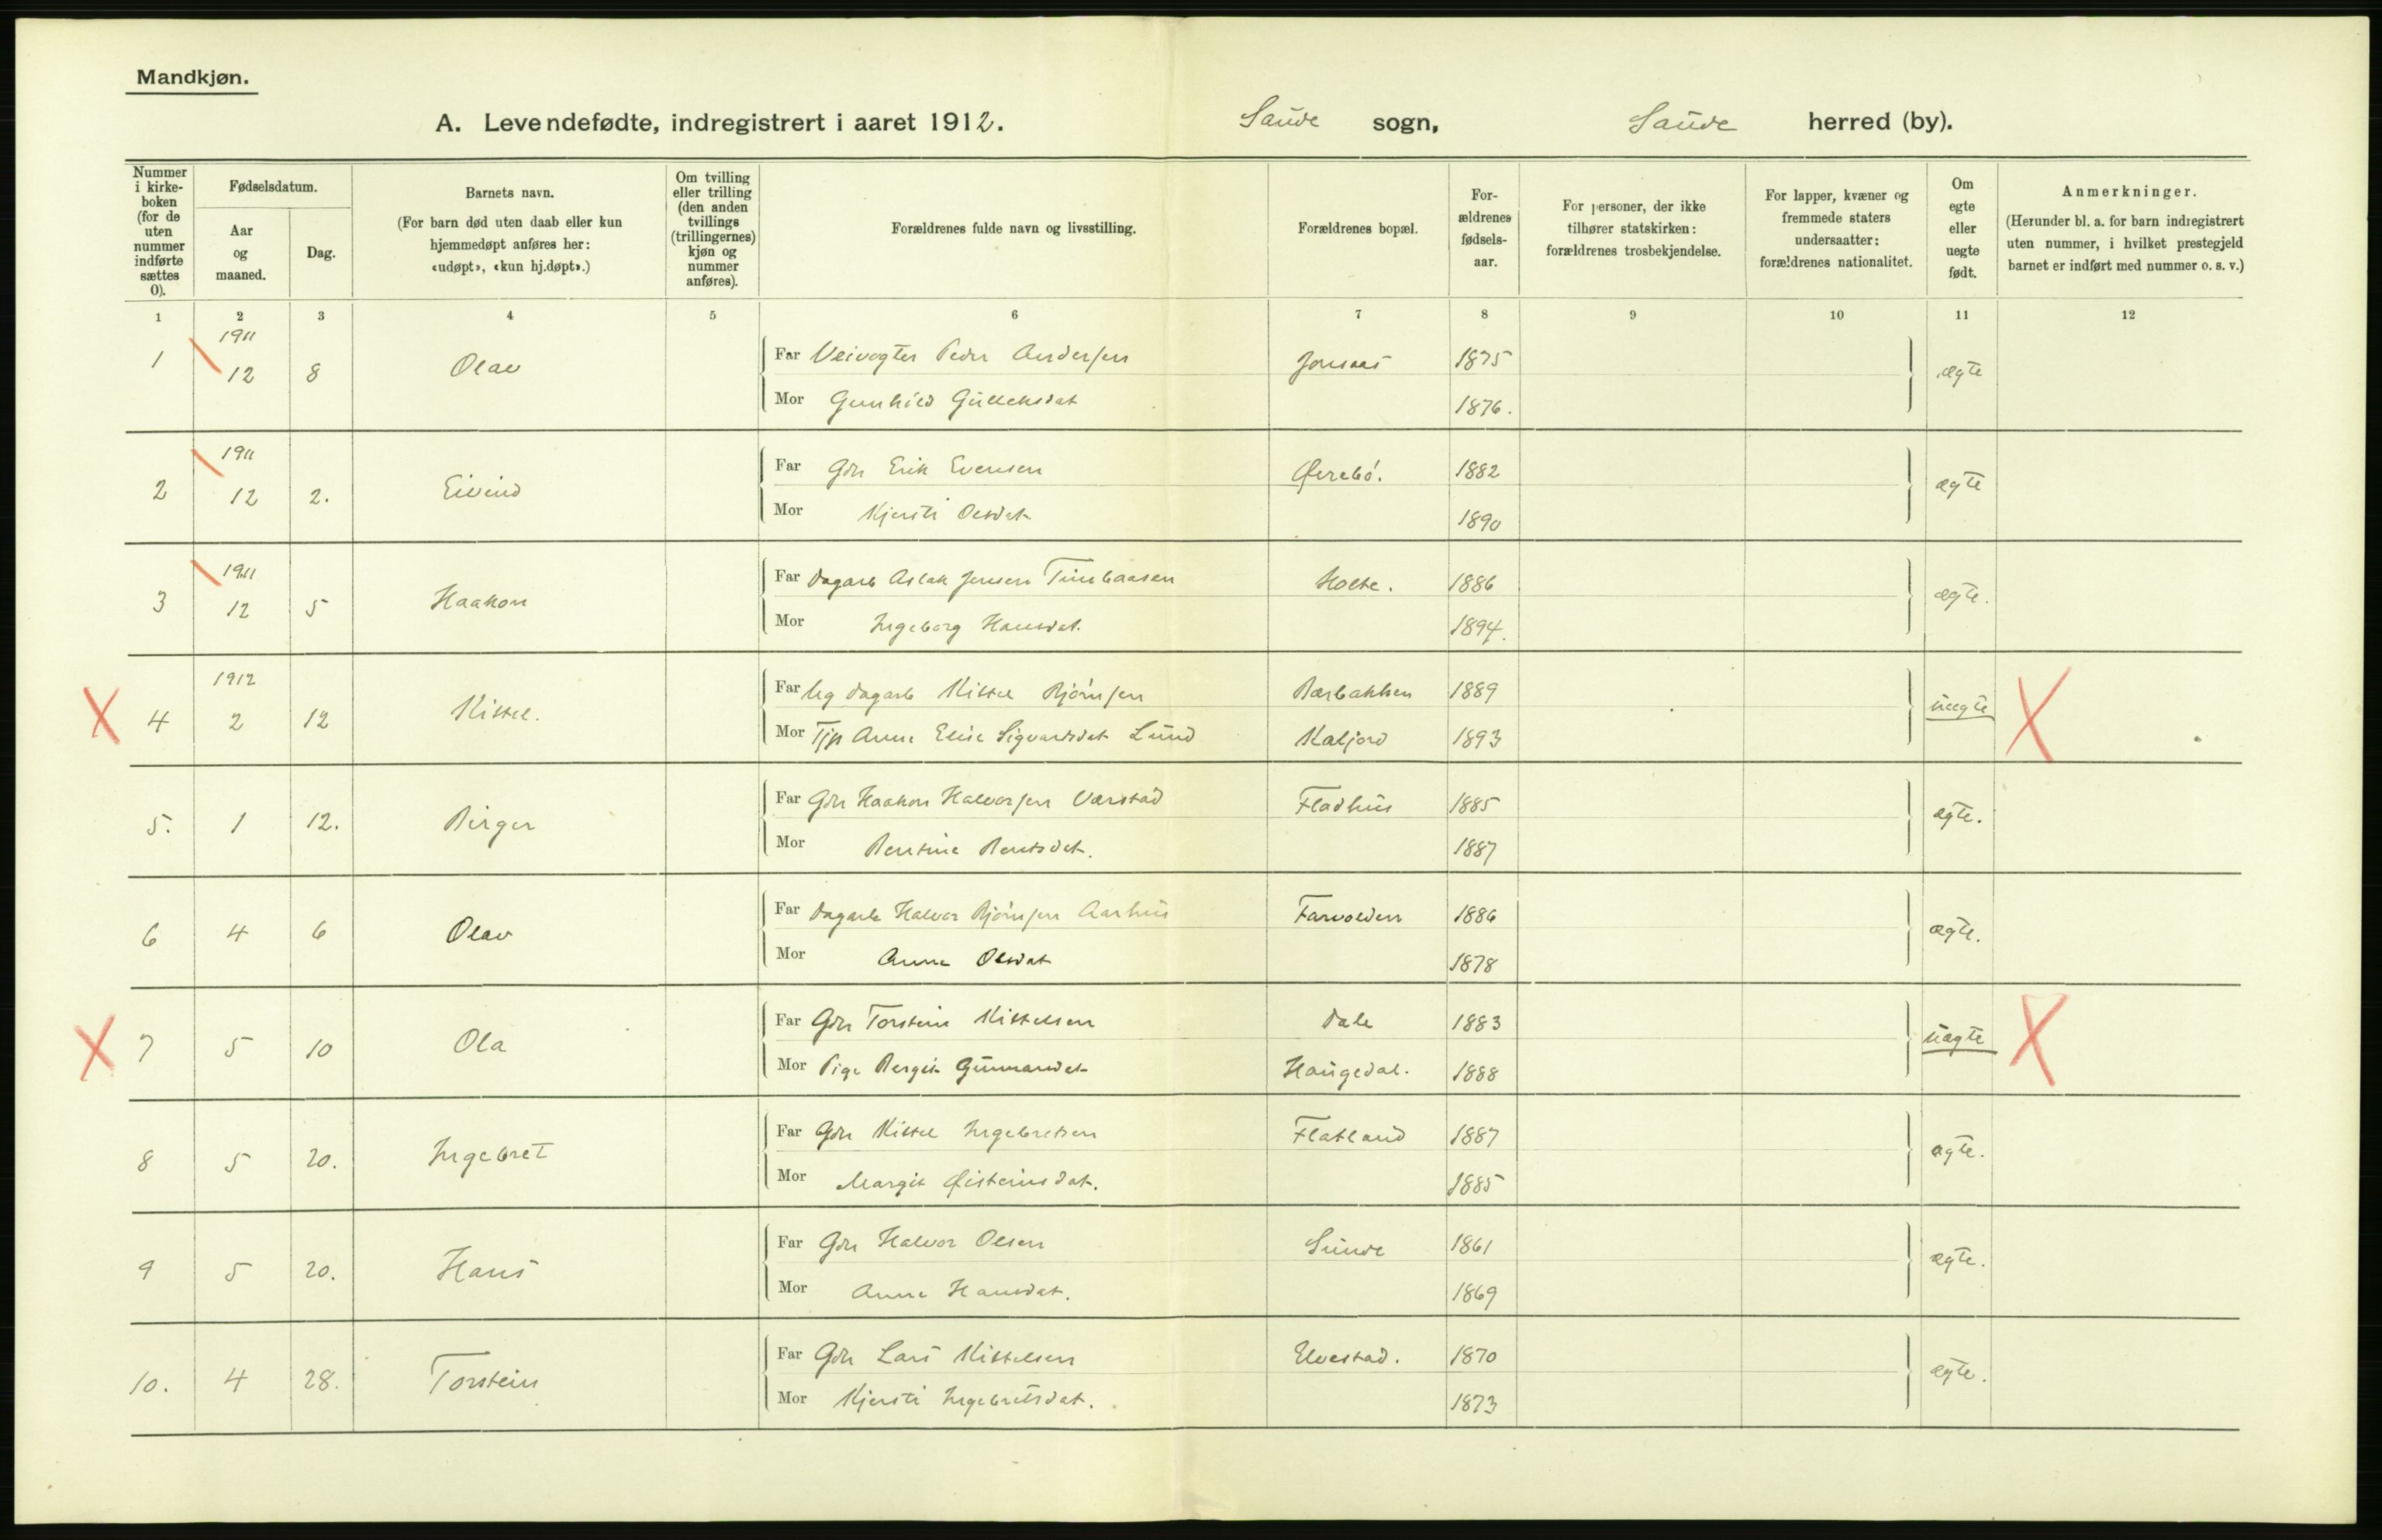 Mandkjøn.
A. Levendefødte, indregistrert i aaret 1912. Saude sogn, Saude herred (by).
Nummer i kirkeboken (for de uten nummer indførte sættes 0).
Fødselsdatum.
Aar og maaned.
Dag.
Barnets navn.
(For barn død uten daab eller kun hjemmedøpt anføres her: «udøpt», «kun hj.døpt».)
Om tvilling eller trilling (den anden tvillings (trillingernes) kjøn og nummer anføres).
Forældrenes fulde navn og livsstilling.
Forældrenes bopæl.
Forældrenes fødselsaar.
For personer, der ikke tilhører statskirken: forældrenes trosbekjendelse.
For lapper, kvæner og fremmede staters undersaatter: forældrenes nationalitet.
Om egte eller uegte født.
Anmerkninger.
(Herunder bl. a. for barn indregistrert uten nummer, i hvilket prestegjeld barnet er indført med nummer o. s. v.)
1 2 3 4 5 6 7 8 9 10 11 12
1 1911 12 8 Olav Far Veivogter Peder Andersen Jonsaas 1875 ægte
Mor Gunhild Gulleksdat 1876.
2 1911 12 2. Eivind Far Gdr Erik Evensen Ørebø. 1882 ægte
Mor Kjersti Olsdat 1890
3 1911 12 5 Haakon Far Dagarb Aslak Jensen Holte. 1886 ægte.
Mor Ingeborg Hansdat. 1894.
4 1912 2 12 Kittel. Far Ug dagarb Kittel Bjørnsen Bærbakken 1889 uægte
Mor Tjp Anne Elise Sigvardsdat Lund Kaljord 1893
5. 1 12. Birger Far Gdr Haakon Halvorsen Værstad Fladhus 1885 ægte.
Mor Bentine Bentsdat. 1887
6 4 6 Olav Far Dagarb Halvor Bjørnsen Aarhus Farvolden 1886 ægte.
Mor Anne Olsdat 1878
7 5 10 Ola Far Gdr Torstein Kittelsen Dale 1883 uægte
Mor Pige Bergit Gunnarsdat Haugedal. 1888
8 5 20. Ingebret Far Gdr Kittel Ingebretsen Flatland 1887 ægte.
Mor Margit Øisteinsdat. 1885
9 5 20. Hans Far Gdr Halvor Olsen Sunde 1861 ægte.
Mor Anne Hansdat. 1869
10. 4 28. Torstein Far Gdr Lars Kittelsen Elvestad. 1870 ægte.
Mor Kjersti Ingebretsdat. 1873